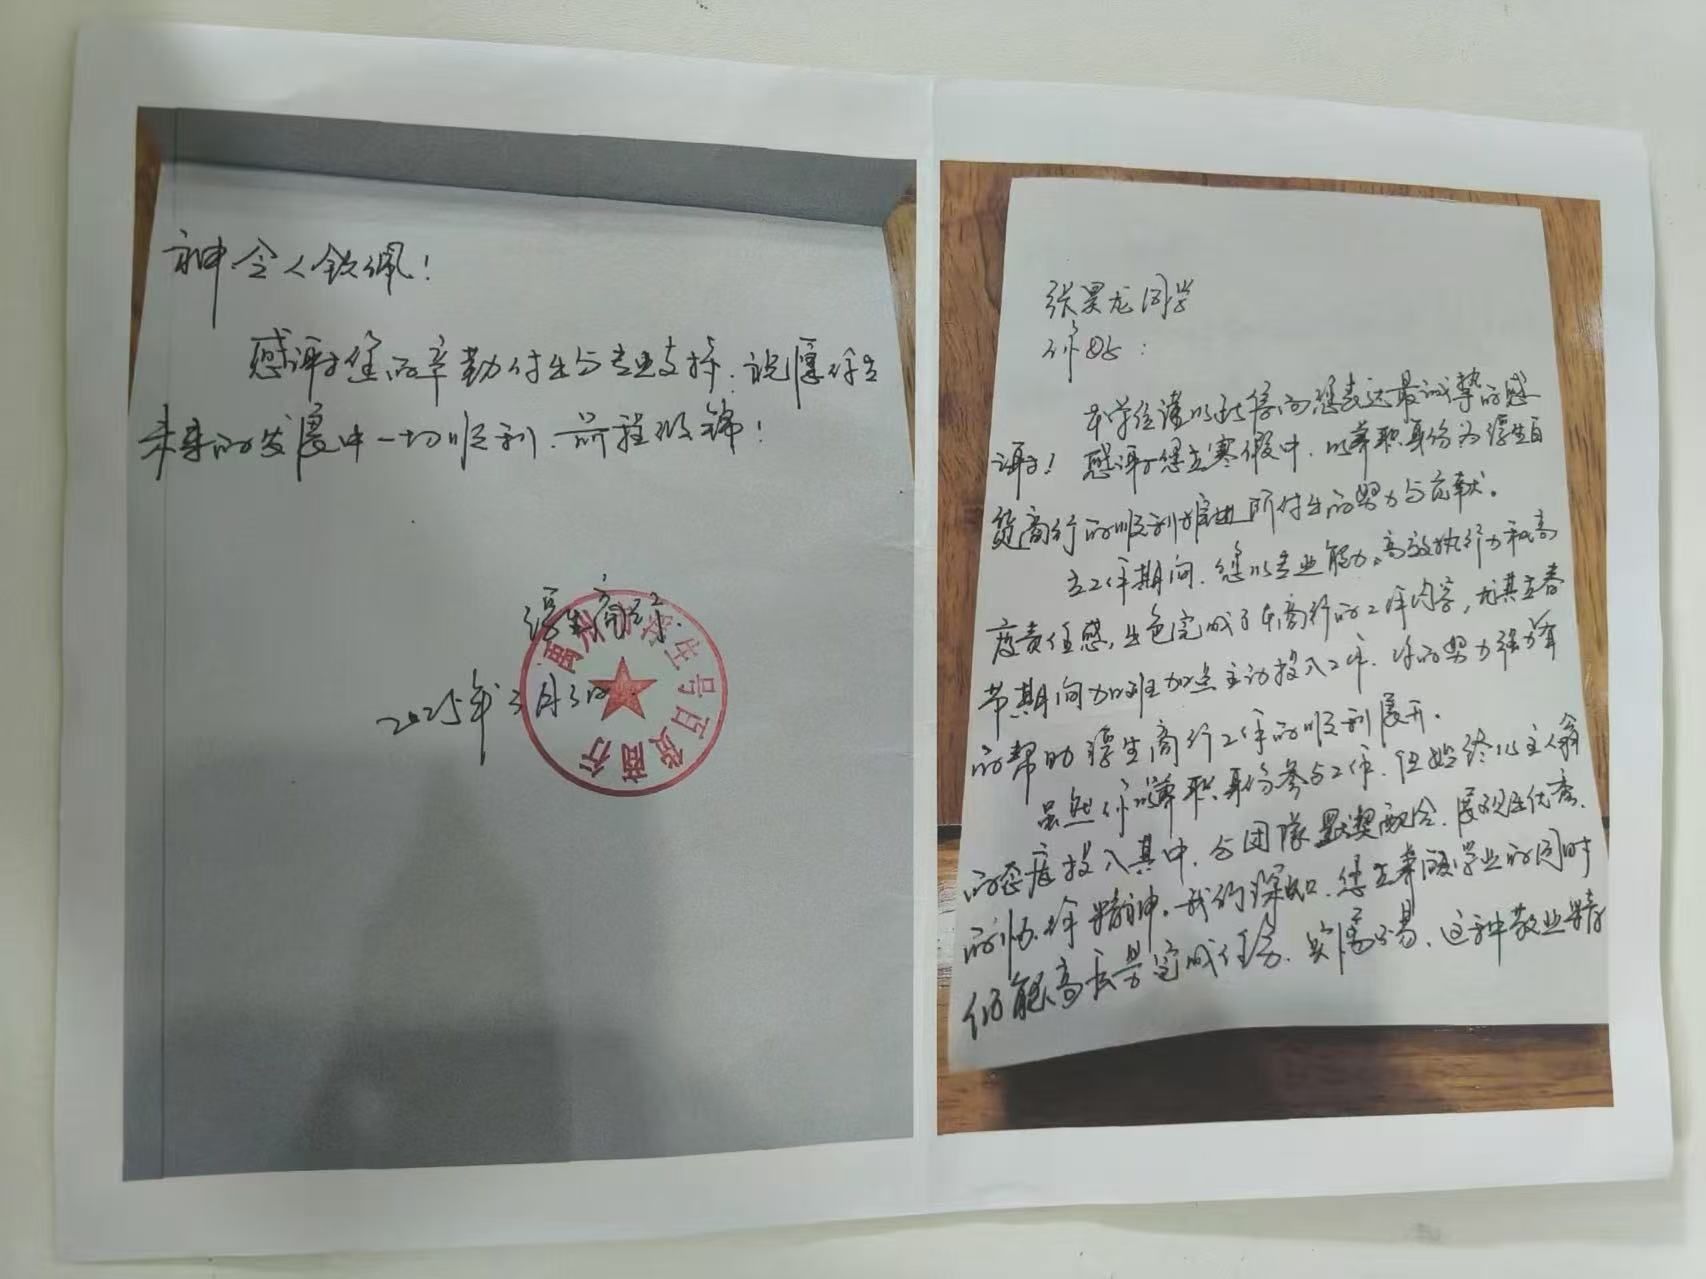 张昊龙同学
你好：
本单位谨以此信向您表达最诚挚的感
谢！感谢您在寒假中，以兼职身份为淳生百
货商行的顺利推进所付出的努力与贡献。
在工作期间，您以专业能力、高效执行力和高
度责任感，出色完成了本商行的工作内容，尤其在春
节期间加班加点主动投入工作，你的努力强有
的帮助淳生商行工作的顺利展开。
虽然你以兼职身份参与工作，但始终以主人翁
的态度投入其中，与团队默契配合，展现出优秀
的协作精神。我们深知，您在兼顾学业的同时
仍能高质量完成任务，实属不易，这种敬业精
神令人钦佩！
感谢您的辛勤付出与专业支持，祝愿你在
未来的发展中一切顺利，前程似锦！
淳生商行
2025年3月3日
生号百货商行